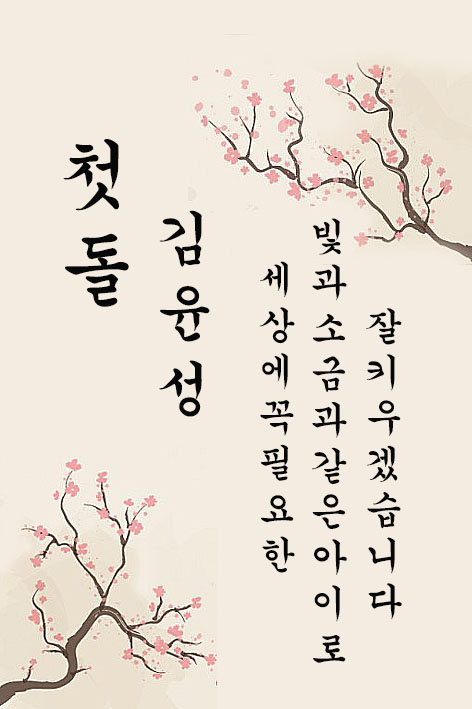 첫돌
김윤성
세상에꼭필요한
빛과소금과같은아이로
잘키우겠습니다